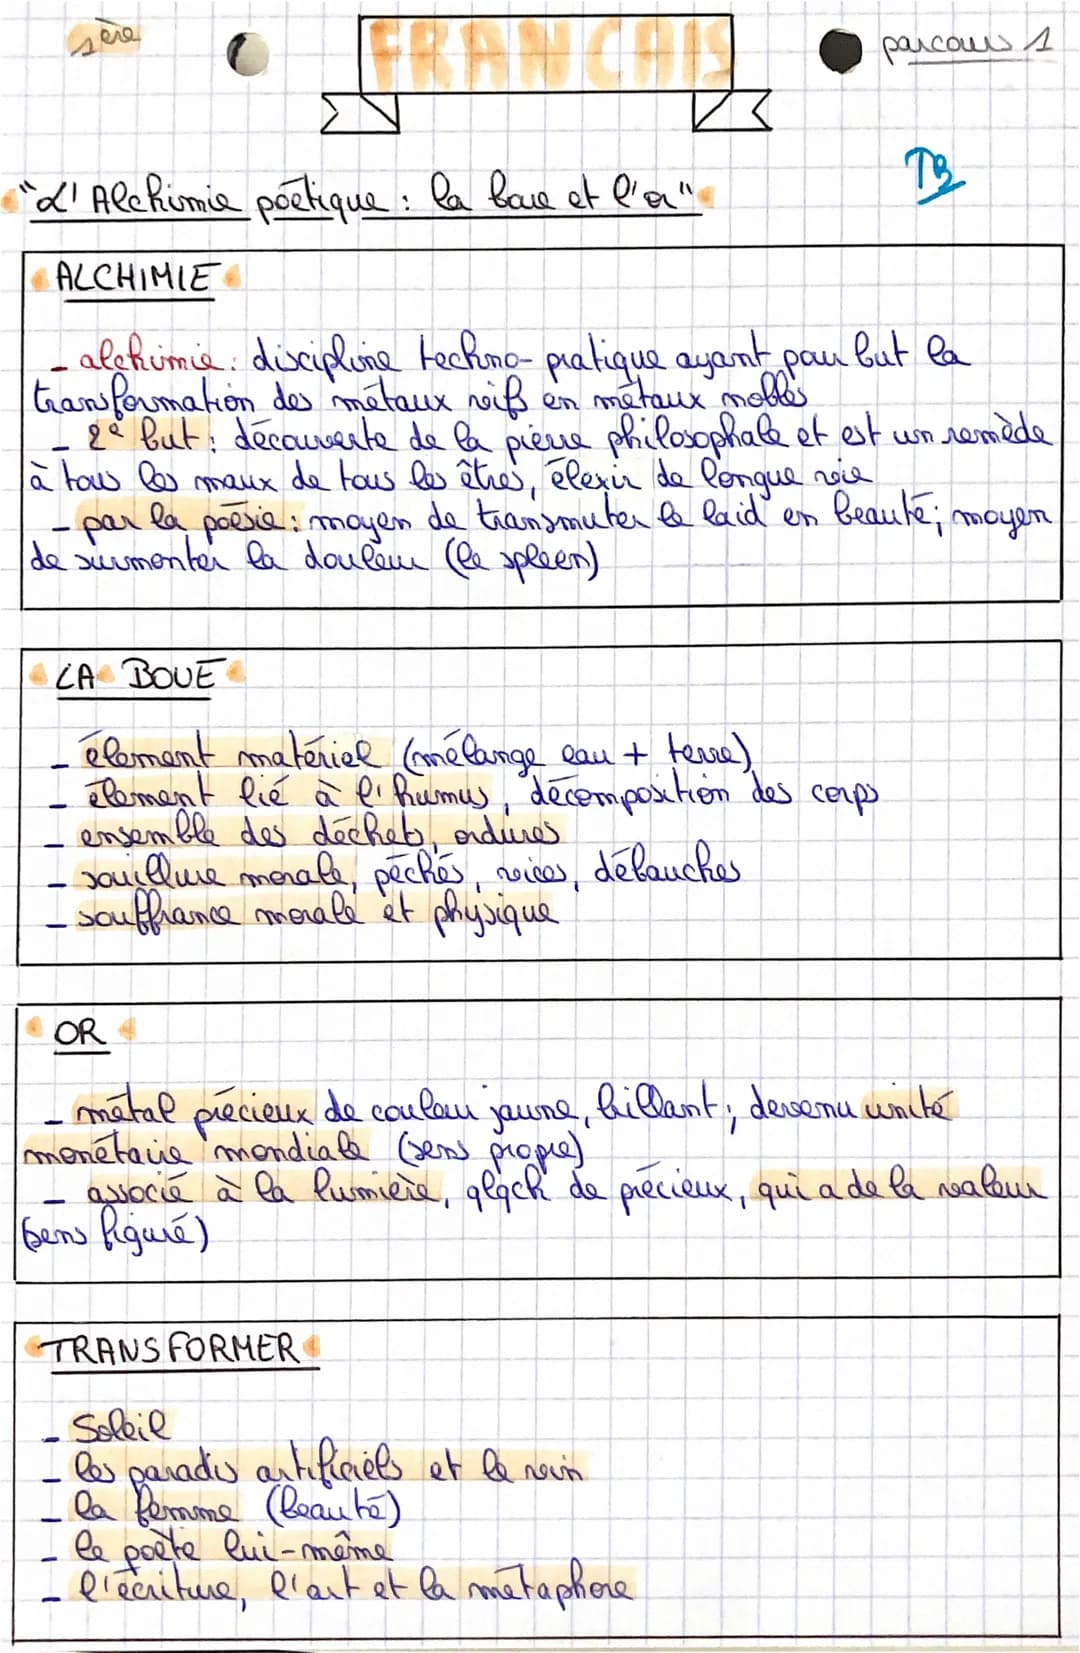 1ère
FRANCAIS
parcours 1
TB
"L'Alchimie poétique : la boue et l'or"
ALCHIMIE
- alchimie : discipline techno-pratique ayant pour but la
transformation des métaux vifs en métaux nobles
- 2e but : découverte de la pierre philosophale et est un remède
à tous les maux de tous les êtres, élexir de longue vie
- par la poésie : moyen de transmuter le laid en beauté ; moyen
de surmonter la douleur (le spleen)
LA BOUE
- élement matériel (mélange eau + terre)
- élement lié à l'humus, décomposition des corps
- ensemble des déchets, ordures
- souillure morale, péchés, vices, débauches
- souffrance morale et physique
OR
- métal précieux de couleur jaune, brillant ; devenu unité
monétaire mondiale (sens propre)
- associé à la lumière, qlqch de précieux, qui a de la valeur
(sens figuré)
TRANSFORMER
- Soleil
- les paradis artificiels et le vin
- la femme (beauté)
- le poète lui-même
- l'écriture, l'art et la métaphore